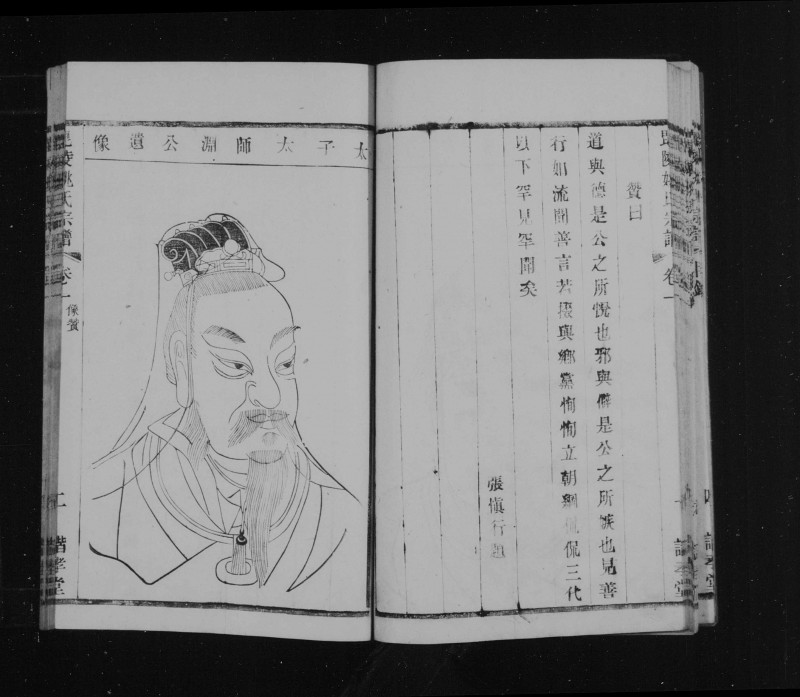 毘陵姚氏宗譜 卷一
贊曰
道與德是公之所悅也邪與僻是公之所嫉也見善
行如流聞善言若掇與鄉黨恂恂立朝剛侃侃三代
以下罕見罕聞矣
張慎行題
太子太師淵公遺像
毘陵姚氏宗譜 卷一 像贊 二 諧孝堂